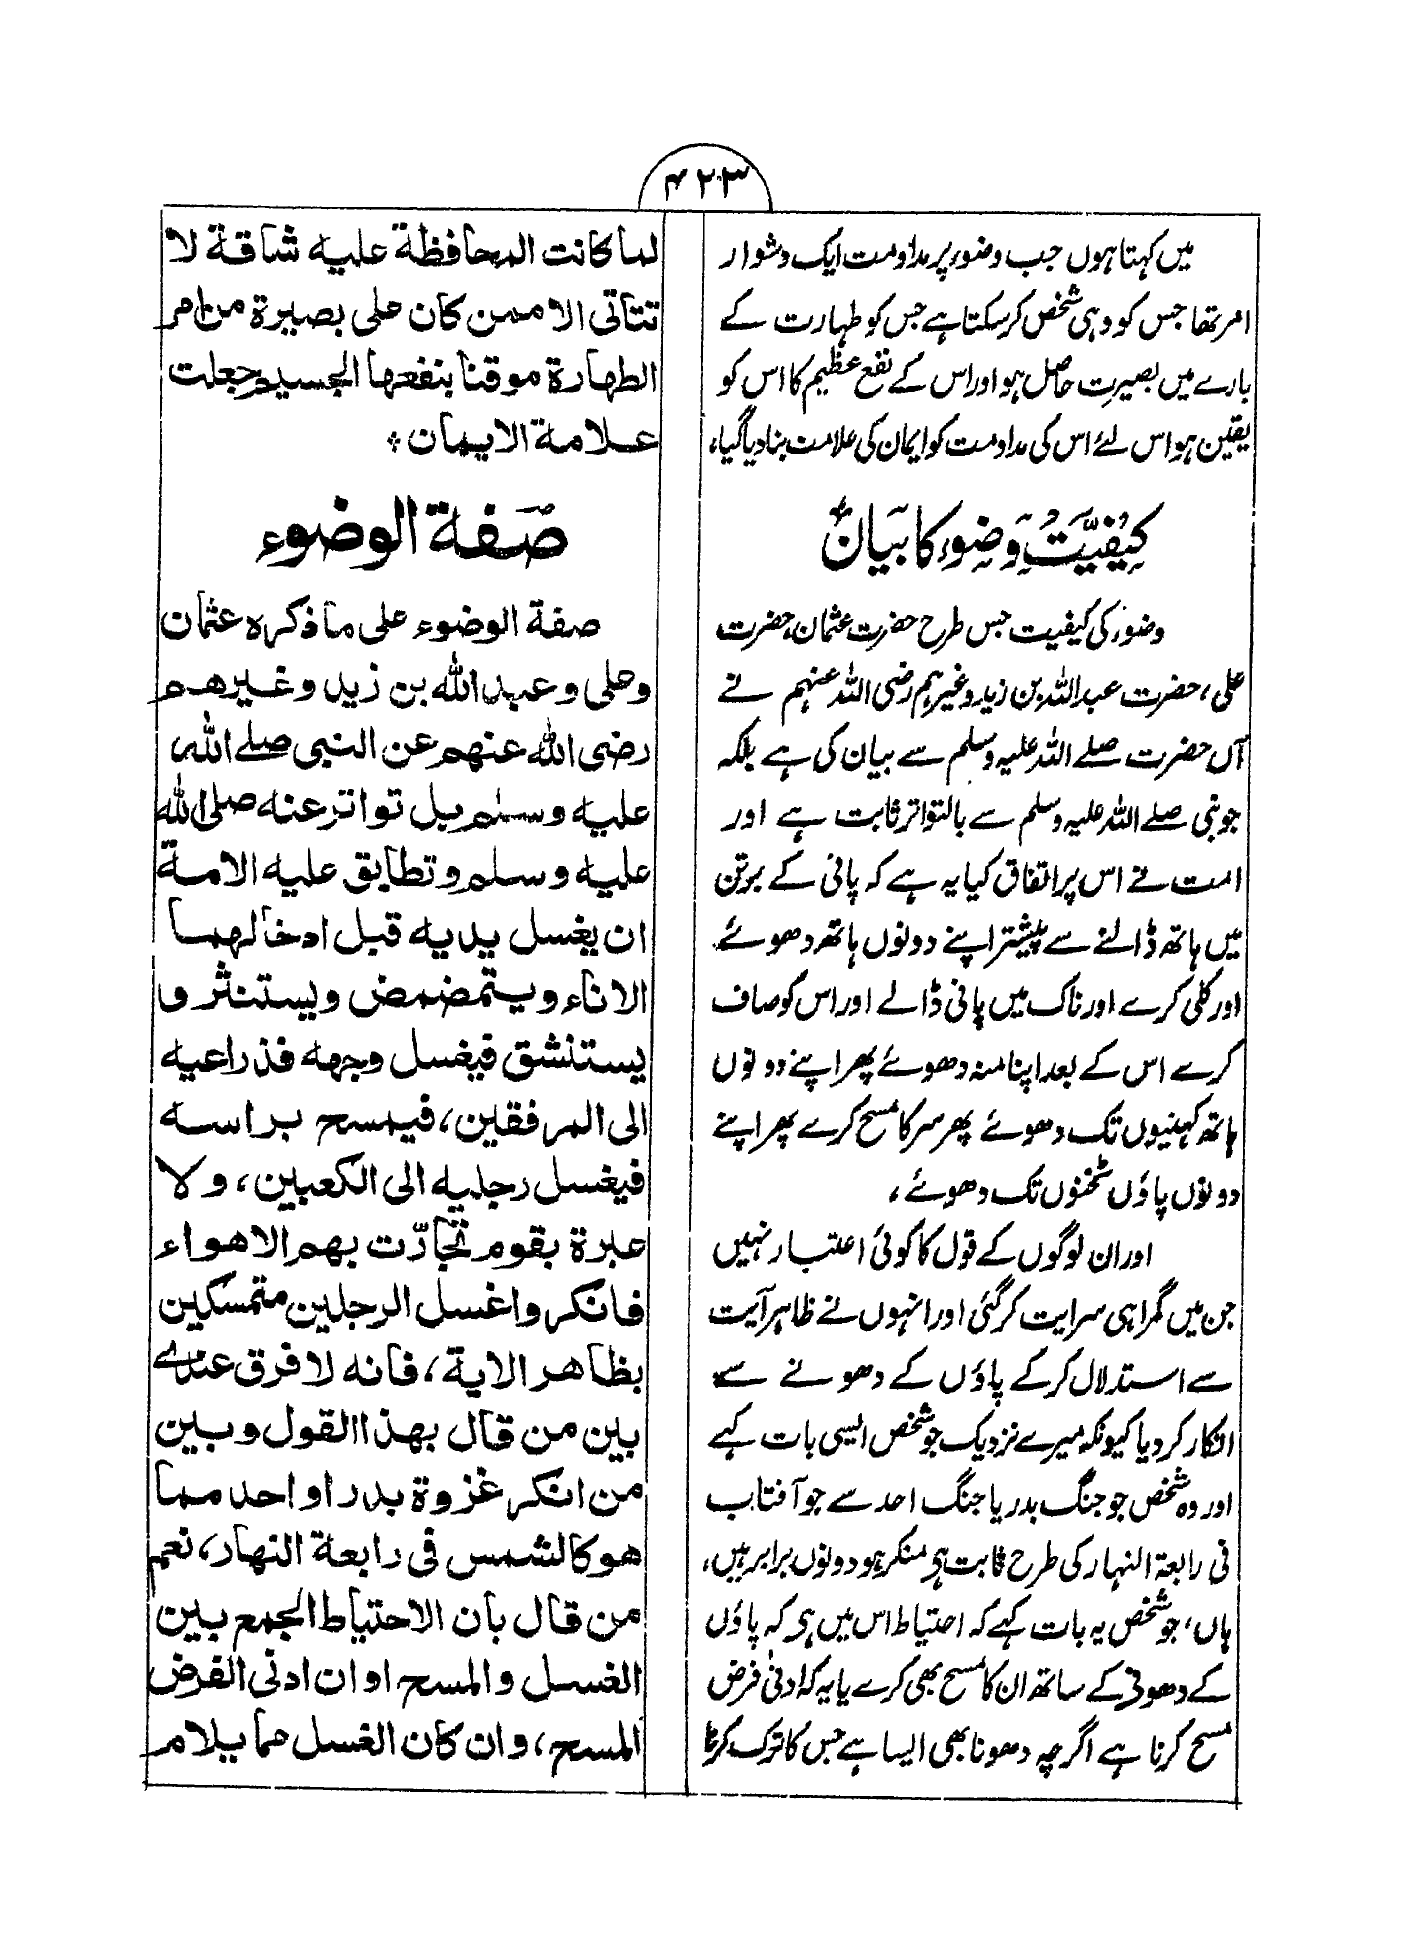 ۴۲۳
میں کہتا ہوں جب وضوء پر مداومت ایک دشوار
امر تھا جس کو وہی شخص کر سکتا ہے جس کو طہارت کے
بارے میں بصیرت حاصل ہو اور اس کے نفع عظیم کا اس کو
یقین ہو اس لئے اس کی مداومت کو ایمان کی علامت بنا دیا گیا،
کیفیّت وضوء کا بیان
وضوء کی کیفیت جس طرح حضرت عثمان، حضرت
علی، حضرت عبد اللہ بن زید وغیرہم رضی اللہ عنہم نے
آں حضرت صلے اللہ علیہ وسلم سے بیان کی ہے بلکہ
جو نبی صلے اللہ علیہ وسلم سے بالتواتر ثابت ہے اور
امت نے اس پر اتفاق کیا یہ ہے کہ پانی کے برتن
میں ہاتھ ڈالنے سے پیشتر اپنے دونوں ہاتھ دھوئے
اور کلی کرے اور ناک میں پانی ڈالے اور اس کو صاف
کرے اس کے بعد اپنا منہ دھوئے پھر اپنے دونوں
ہاتھ کہنیوں تک دھوئے پھر سر کا مسح کرے پھر اپنے
دونوں پاؤں ٹخنوں تک دھوئے،
اور ان لوگوں کے قول کا کوئی اعتبار نہیں
جن میں گمراہی سرایت کر گئی اور انہوں نے ظاہر آیت
سے استدلال کر کے پاؤں کے دھونے سے
انکار کر دیا کیونکہ میرے نزدیک جو شخص ایسی بات کہے
اور وہ شخص جو جنگ بدر یا جنگ احد سے جو آفتاب
فی رابعۃ النہار کی طرح ثابت ہی منکر ہو دونوں برابر ہیں،
ہاں، جو شخص یہ بات کہے کہ احتیاط اس میں ہی کہ پاؤں
کے دھونے کے ساتھ ان کا مسح بھی کرے یا یہ کہ ادنیٰ فرض
مسح کرنا ہے اگرچہ دھونا بھی ایسا ہے جس کا ترک کرنا
لما كانت المحافظة عليه شاقة لا
تتاتى الا ممن كان على بصيرة من امر
الطهارة موقنا بنفعها الجسيم جعلت
علامة الايمان
صفة الوضوء
صفة الوضوء على ما ذكره عثمان
وعلى وعبد الله بن زيد وغيرهم
رضى الله عنهم عن النبى صلے الله
عليه وسلم بل تواتر عنه صلى الله
عليه وسلم وتطابق عليه الامة
ان يغسل يديه قبل ادخالهما
الاناء ويتمضمض ويستنثر و
يستنشق فيغسل وجهه فذراعيه
الى المرفقين، فيمسح براسه
فيغسل رجليه الى الكعبين، ولا
عبرة بقوم تجارّت بهم الاهواء
فانكروا غسل الرجلين متمسكين
بظاهر الاية، فانه لا فرق عندے
بين من قال بهذا القول وبين
من انكر غزوة بدر او احد مما
هو كالشمس فى رابعة النهار، نعم
من قال بان الاحتياط الجمع بين
الغسل والمسح او ان ادنى الفرض
المسح، وان كان الغسل مما يلام